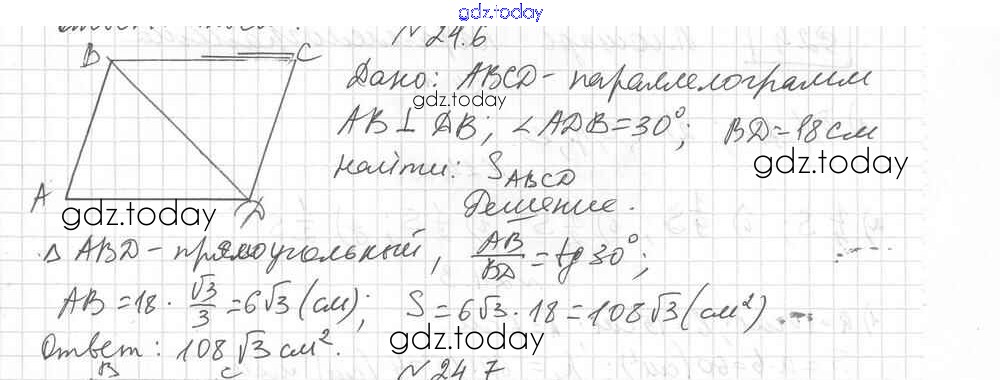 gdz.today
№ 24.6
B C
Дано: ABCD - параллелограмм
gdz.today
AB ⊥ DB; ∠ADB = 30°; BD = 18 см
gdz.today
Найти: S_ABCD
A D
gdz.today
Решение.
Δ ABD - прямоугольный, AB/BD = tg 30°;
AB = 18 · √3/3 = 6√3 (см); S = 6√3 · 18 = 108√3 (см²)
Ответ: 108 √3 см².
gdz.today
B C
№ 24.7